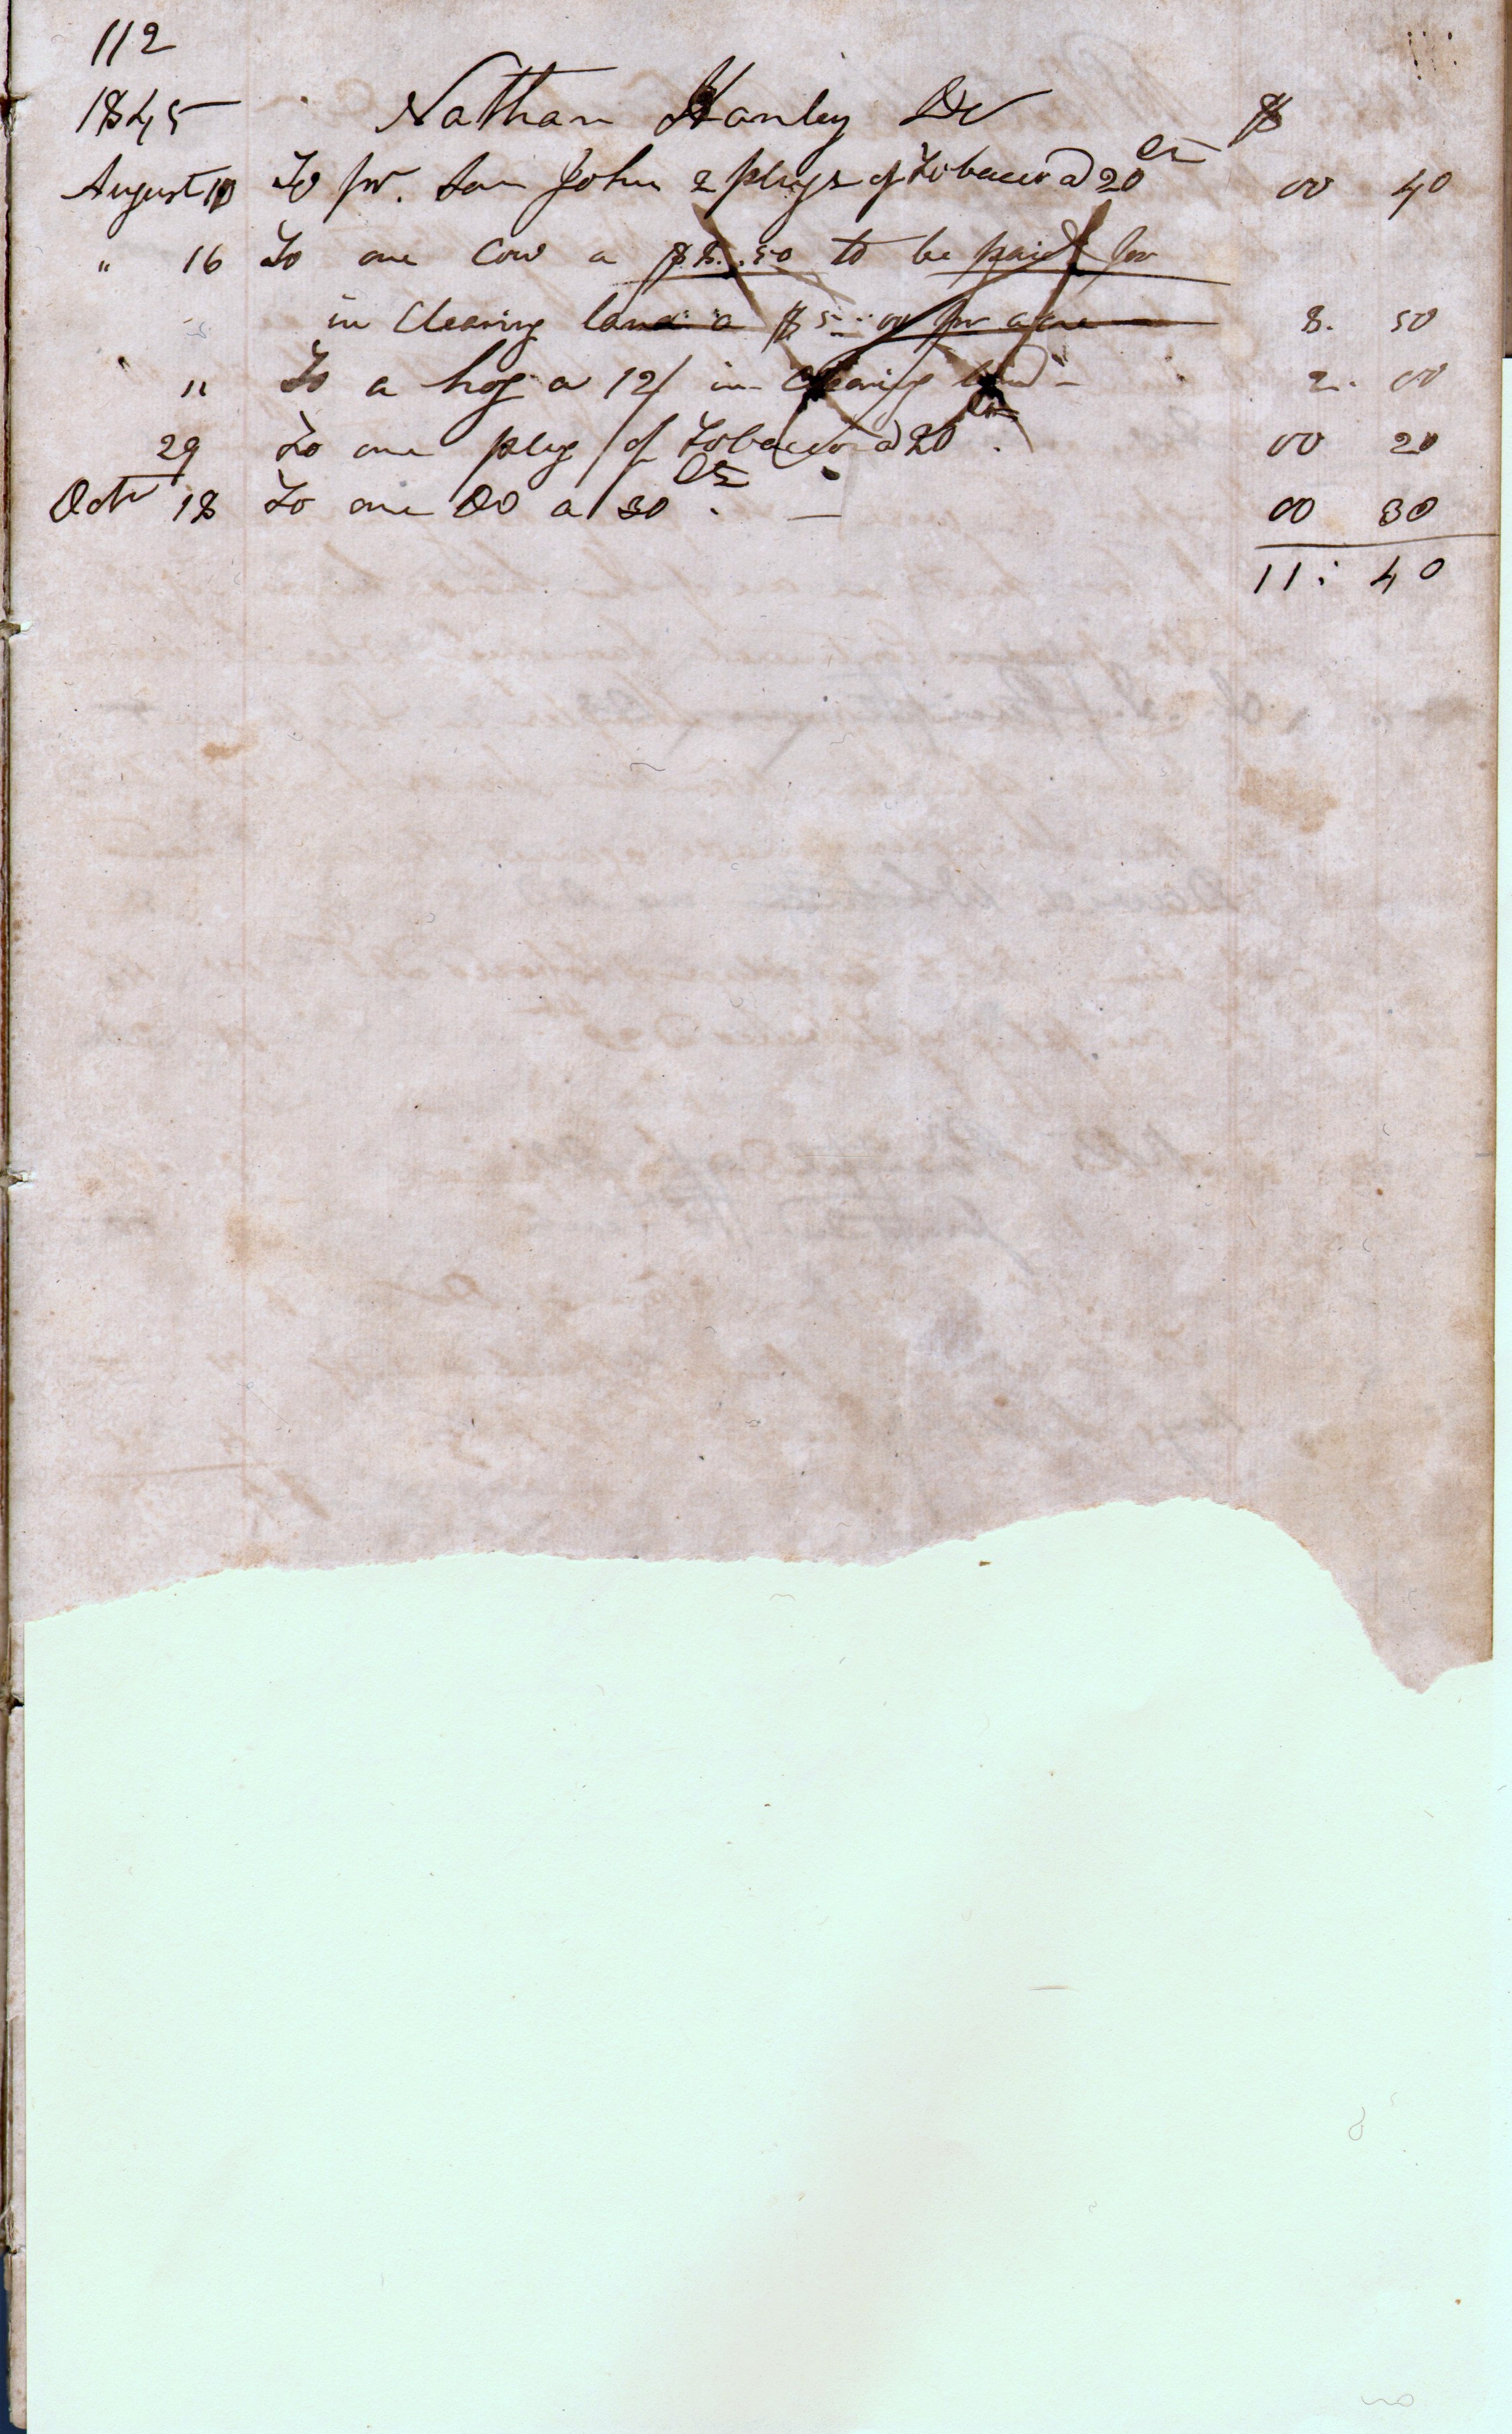 112
1845 Nathan Hanley Dr $
August 10 To pr. son John 2 plugs of Tobacco a 20 cts 00 40
" 16 To one Cow a $8..50 to be paid for
in Clearing land a $5..00 pr acre 8. 50
" To a hog a 12/ in Clearing land - 2. 00
29 To one plug of Tobacco a 20 cts. 00 20
Octr 18 To one Do a 30 cts. — 00 30
11: 40